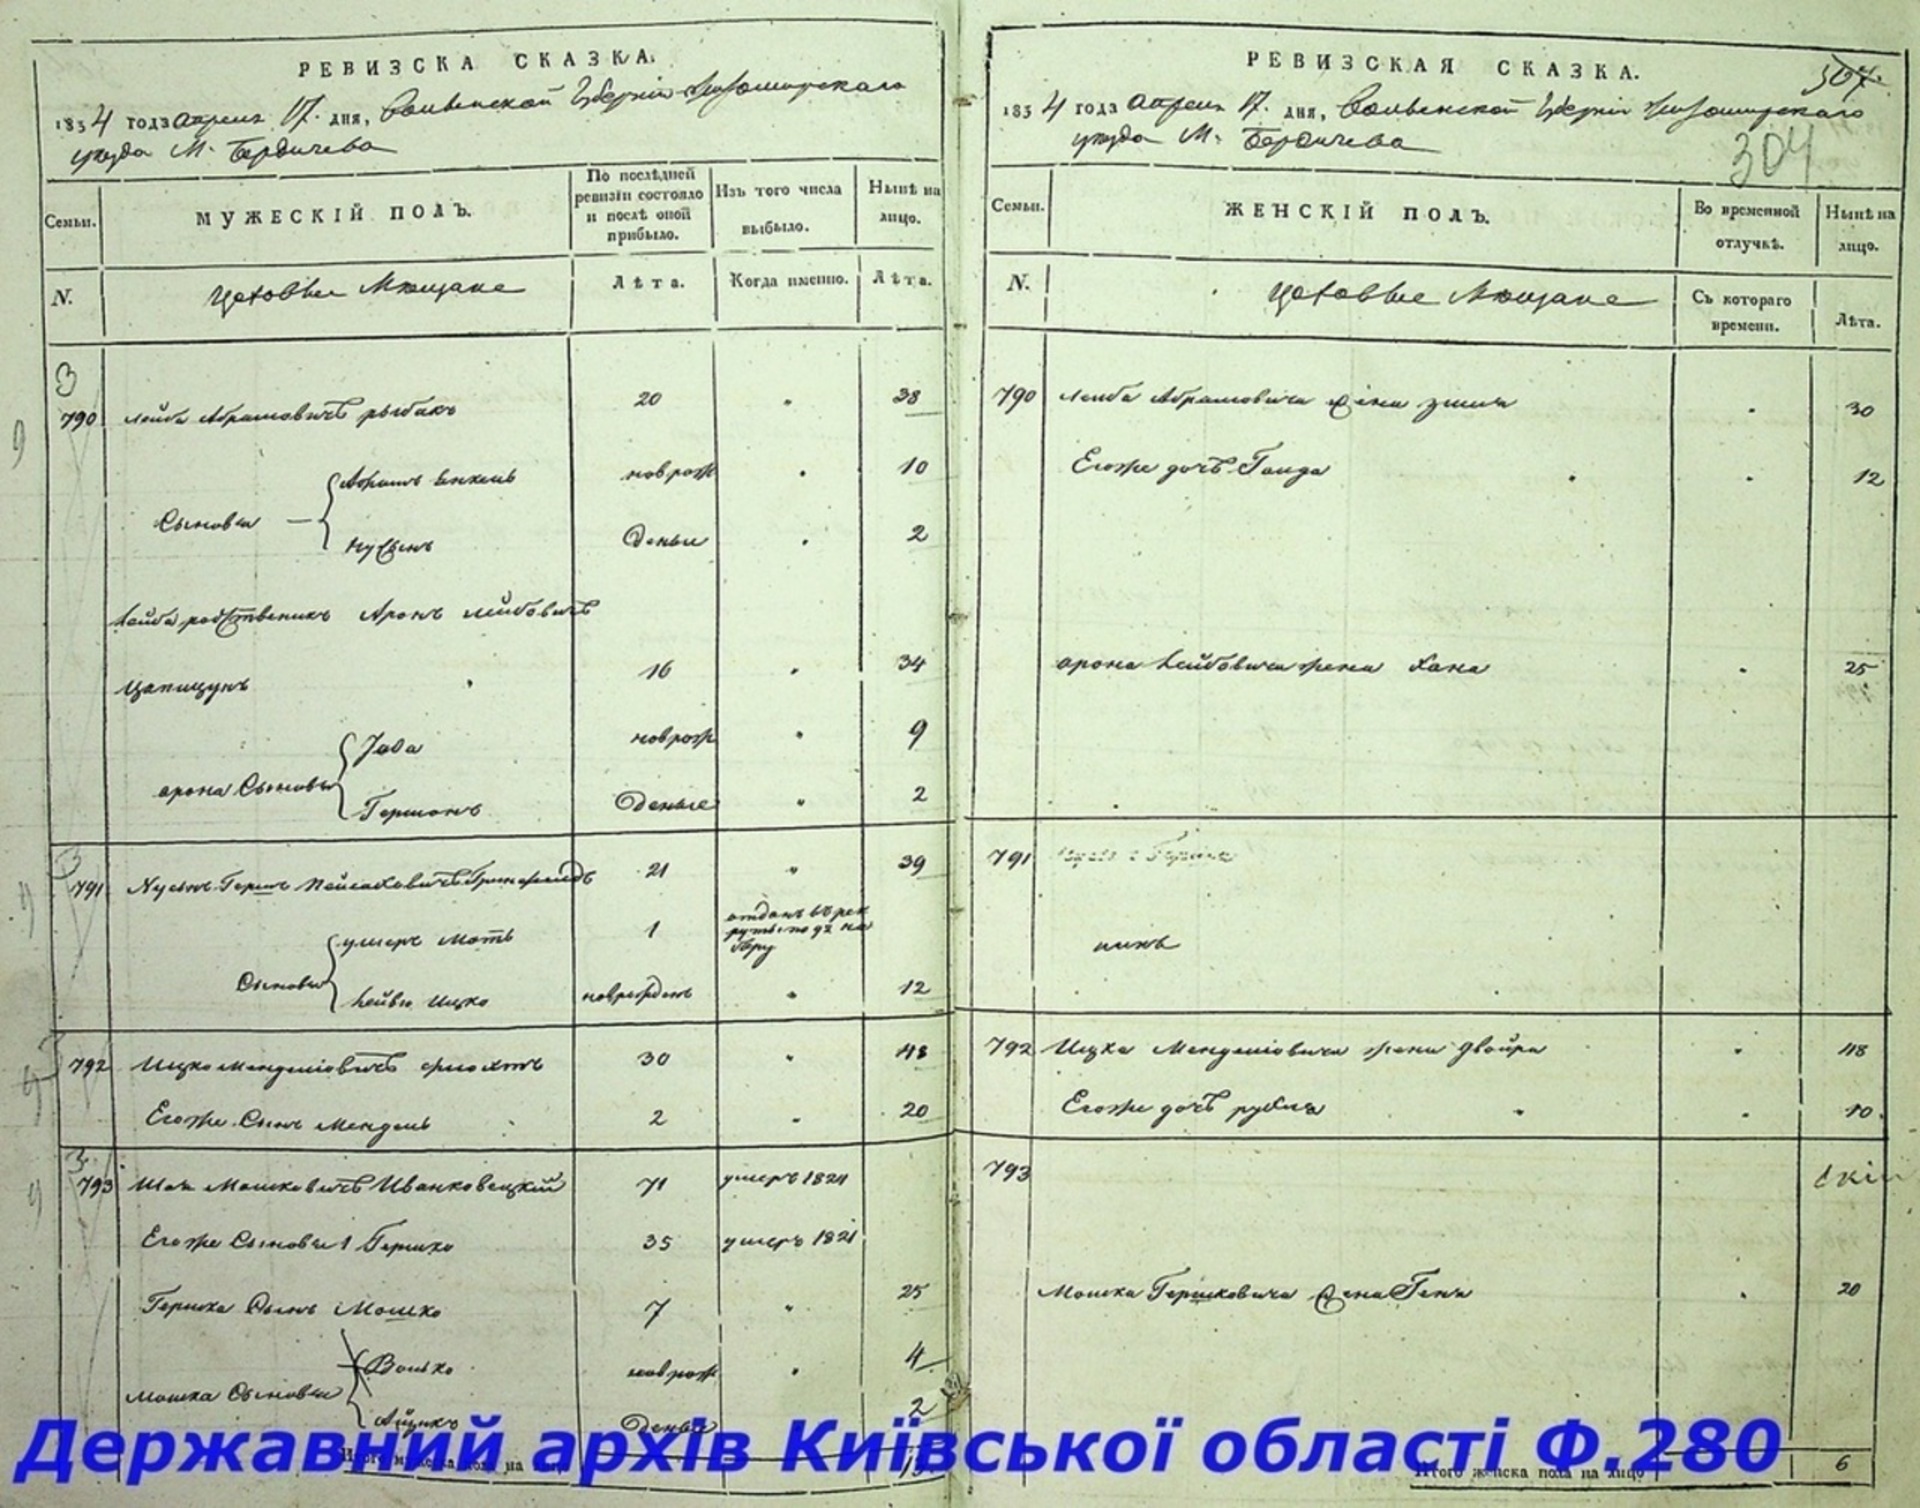 РЕВИЗСКА СКАЗКА.
1834 года апреля 17. дня, Волынской Губернии Житомирскаго
уезда М. Бердичева
Семьи.
МУЖЕСКІЙ ПОЛЪ.
По послѣдней
ревизіи состояло
и послѣ оной
прибыло.
Изъ того числа
выбыло.
Нынѣ на
лицо.
N.
Цеховые Мещане
Лѣта.
Когда именно.
Лѣта.
3
790 Лейба Абрамовичъ рыбакъ 20 " 38
Абрамъ Янкель новрож " 10
Сыновья
Нусынъ Деные " 2
Лейба родственикъ Аронъ Лейбовичъ
16 " 34
новрож " 9
арона Сыновья
Гершонъ Деные " 2
3
791 Нусынъ Герш Пейсаховичъ 21 " 39
Мотъ 1 отданъ въ рек
руты по 92 на
бору
Сыновья
Лейви Ицко новрожденъ " 12
3
792 Ицко Менделіовичъ 30 " 48
Егоже Сынъ Мендель 2 " 20
3
793 Мошковичъ Иванковецкій 71 умеръ 1824
Егоже Сыновья 1 Гершко 35 умеръ 1821
Гершка Сынъ Мошко 7 " 25
Волько новрож " 4
Мошка Сыновья
Айзикъ Деные 2
Итого мужеска пола на лицо
РЕВИЗСКАЯ СКАЗКА.
507.
1834 года апреля 17. дня, Волынской Губерніи Житомирскаго
уезда М. Бердичева
304
Семьи.
ЖЕНСКІЙ ПОЛЪ.
Во временной
отлучкѣ.
Нынѣ на
лицо.
N.
Цеховые Мещане
Съ котораго
времени.
Лѣта.
790 Лейба Абрамовича жена " 30
Егоже дочь " 12
арона Лейбовича жена Хана " 25
791
792 Ицка Менделіовича жена Двойра " 48
Егоже дочь " 10
793
Мошка Гершковича жена " 20
Итого женска пола на лицо 6
Державний архів Київської області Ф.280